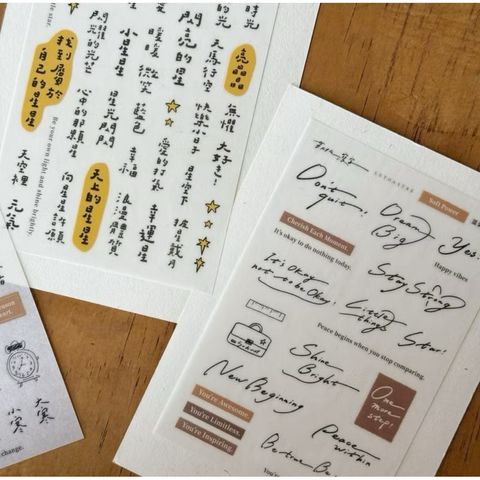 le star.
時光
的光
閃耀的光芒
閃亮的星
小星星
天馬行空
暖暖
微笑
亮晶晶
找到屬於
自己的星星
心中的那顆星
星光閃閃
藍色
快樂小日子
無懼
大好き!
Be your own light and shine brightly.
幸福
愛的打氣
星空下
天空裡
元氣
向星星許願
天上的星星
浪漫體質
幸運星
披星戴月
Don't
quit,
Dream
Big
Soft Power
Yes.
Cherish Each Moment.
It's okay to do nothing today.
Happy vibes
It's Okay
not to be Okay!
Stay Strong
Little
things
Star!
Peace begins when you stop comparing.
Shine
Bright
New Beginning
One
more
step!
You're Awesome.
You're Limitless.
You're Inspiring.
Peace
within
大寒
小寒
change.